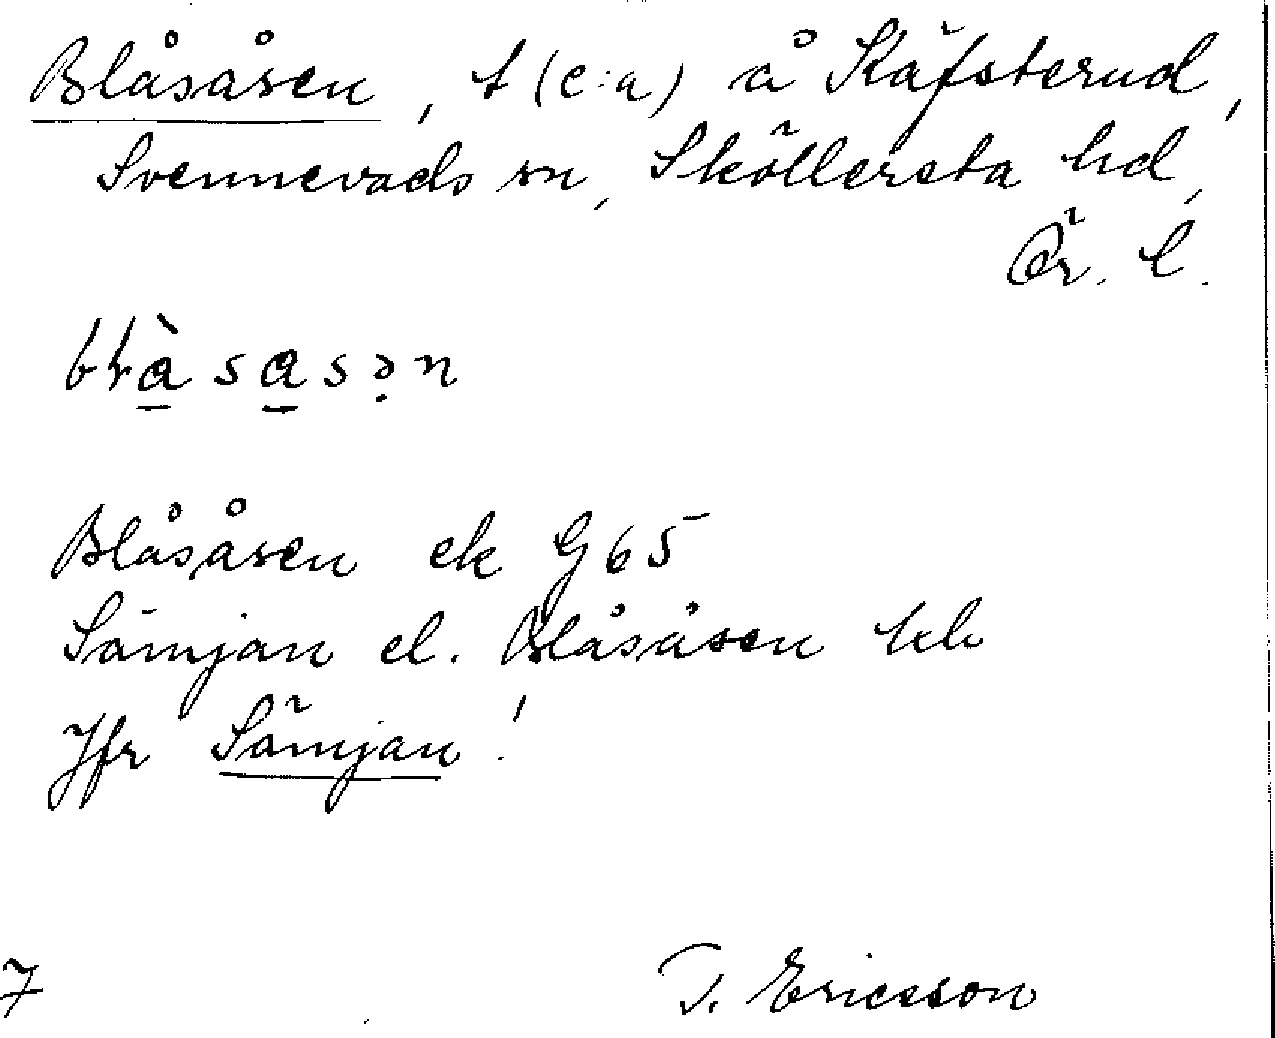 Blåsåsen, t (e:a) å Käfsterud,
Svennevads sn, Sköllersta hd,
Ör. l.
Blåsåsen ek G65
Sämjan el. Blåsåsen hk
Jfr Sämjan!
7
T. Ericsson